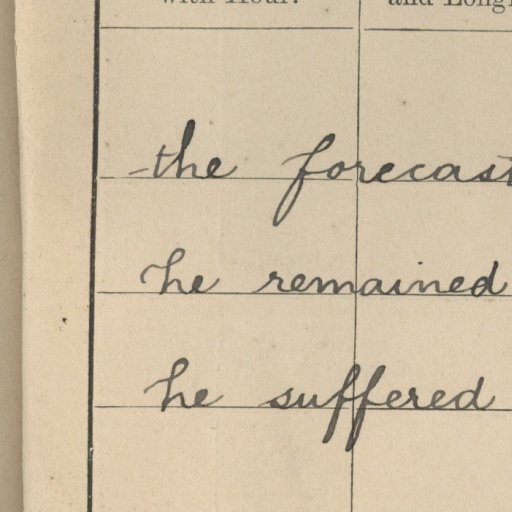 with Hour.
the forecast
he remained
he suffered